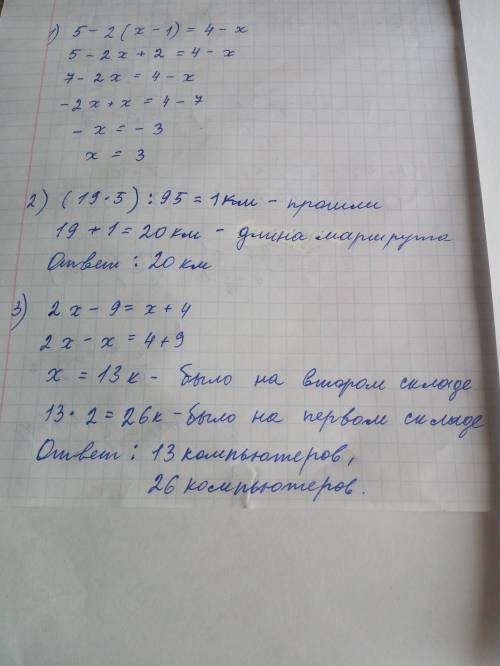 1) 5 - 2 (x - 1) = 4 - x
5 - 2x + 2 = 4 - x
7 - 2x = 4 - x
-2x + x = 4 - 7
- x = - 3
x = 3
2) (19 · 5) : 95 = 1 км - прошли
19 + 1 = 20 км - длина маршрута
Ответ : 20 км
3) 2x - 9 = x + 4
2x - x = 4 + 9
x = 13 к - было на втором складе
13 · 2 = 26 к - было на первом складе
Ответ : 13 компьютеров,
26 компьютеров.